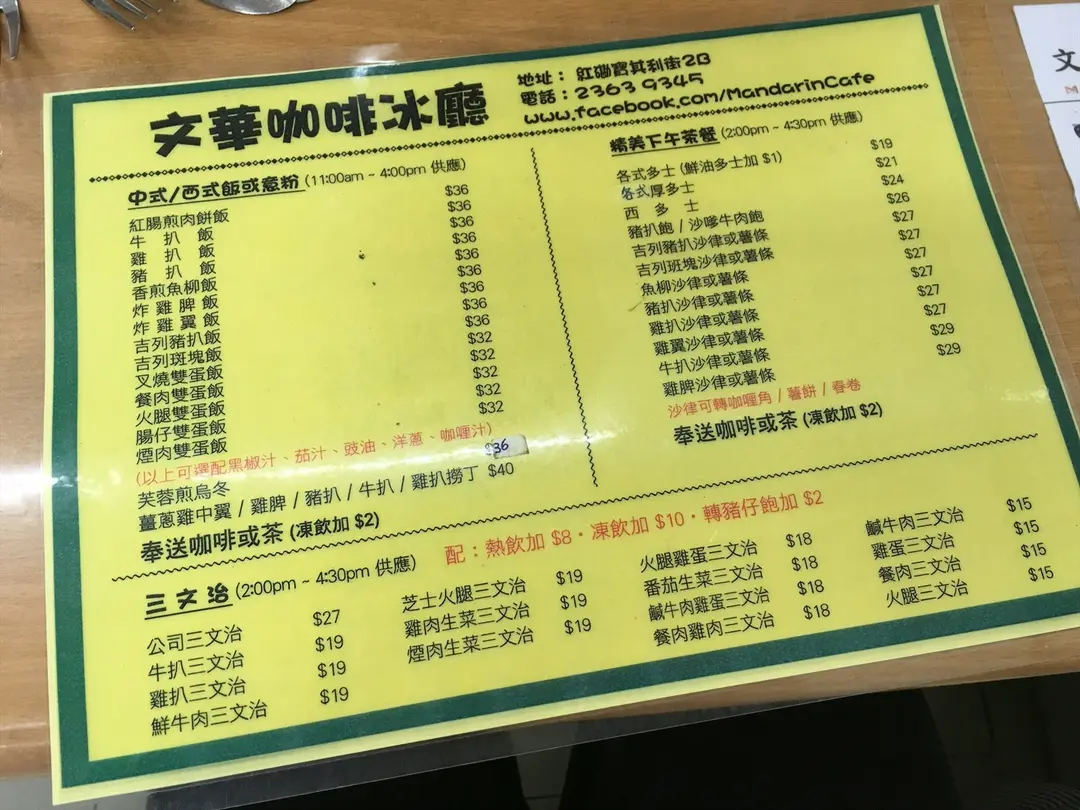 文華咖啡冰廳
地址：紅磡寶其利街2B
電話：2363 9345
www.facebook.com/MandarinCafe
中式/西式飯或意粉 (11:00am ~ 4:00pm 供應)
紅腸煎肉餅飯 $36
牛扒飯 $36
雞扒飯 $36
豬扒飯 $36
香煎魚柳飯 $36
炸雞脾飯 $36
炸雞翼飯 $36
吉列豬扒飯 $36
吉列斑塊飯 $36
叉燒雙蛋飯 $32
餐肉雙蛋飯 $32
火腿雙蛋飯 $32
腸仔雙蛋飯 $32
煙肉雙蛋飯 $32
(以上可選配黑椒汁、茄汁、豉油、洋蔥、咖喱汁)
芙蓉煎烏冬 $36
薑蔥雞中翼 / 雞脾 / 豬扒 / 牛扒 / 雞扒撈丁 $40
奉送咖啡或茶 (凍飲加 $2)
精美下午茶餐 (2:00pm ~ 4:30pm 供應)
各式多士 (鮮油多士加 $1) $19
各式厚多士 $21
西多士 $24
豬扒飽 / 沙嗲牛肉飽 $26
吉列豬扒沙律或薯條 $27
吉列班塊沙律或薯條 $27
魚柳沙律或薯條 $27
豬扒沙律或薯條 $27
雞扒沙律或薯條 $27
雞翼沙律或薯條 $27
牛扒沙律或薯條 $29
雞脾沙律或薯條 $29
沙律可轉咖喱角 / 薯餅 / 春卷
奉送咖啡或茶 (凍飲加 $2)
三文治 (2:00pm ~ 4:30pm 供應)
配：熱飲加 $8・凍飲加 $10・轉豬仔飽加 $2
公司三文治 $27
牛扒三文治 $19
雞扒三文治 $19
鮮牛肉三文治 $19
芝士火腿三文治 $19
雞肉生菜三文治 $19
煙肉生菜三文治 $19
火腿雞蛋三文治 $18
番茄生菜三文治 $18
鹹牛肉雞蛋三文治 $18
餐肉雞肉三文治 $18
鹹牛肉三文治 $15
雞蛋三文治 $15
餐肉三文治 $15
火腿三文治 $15
文